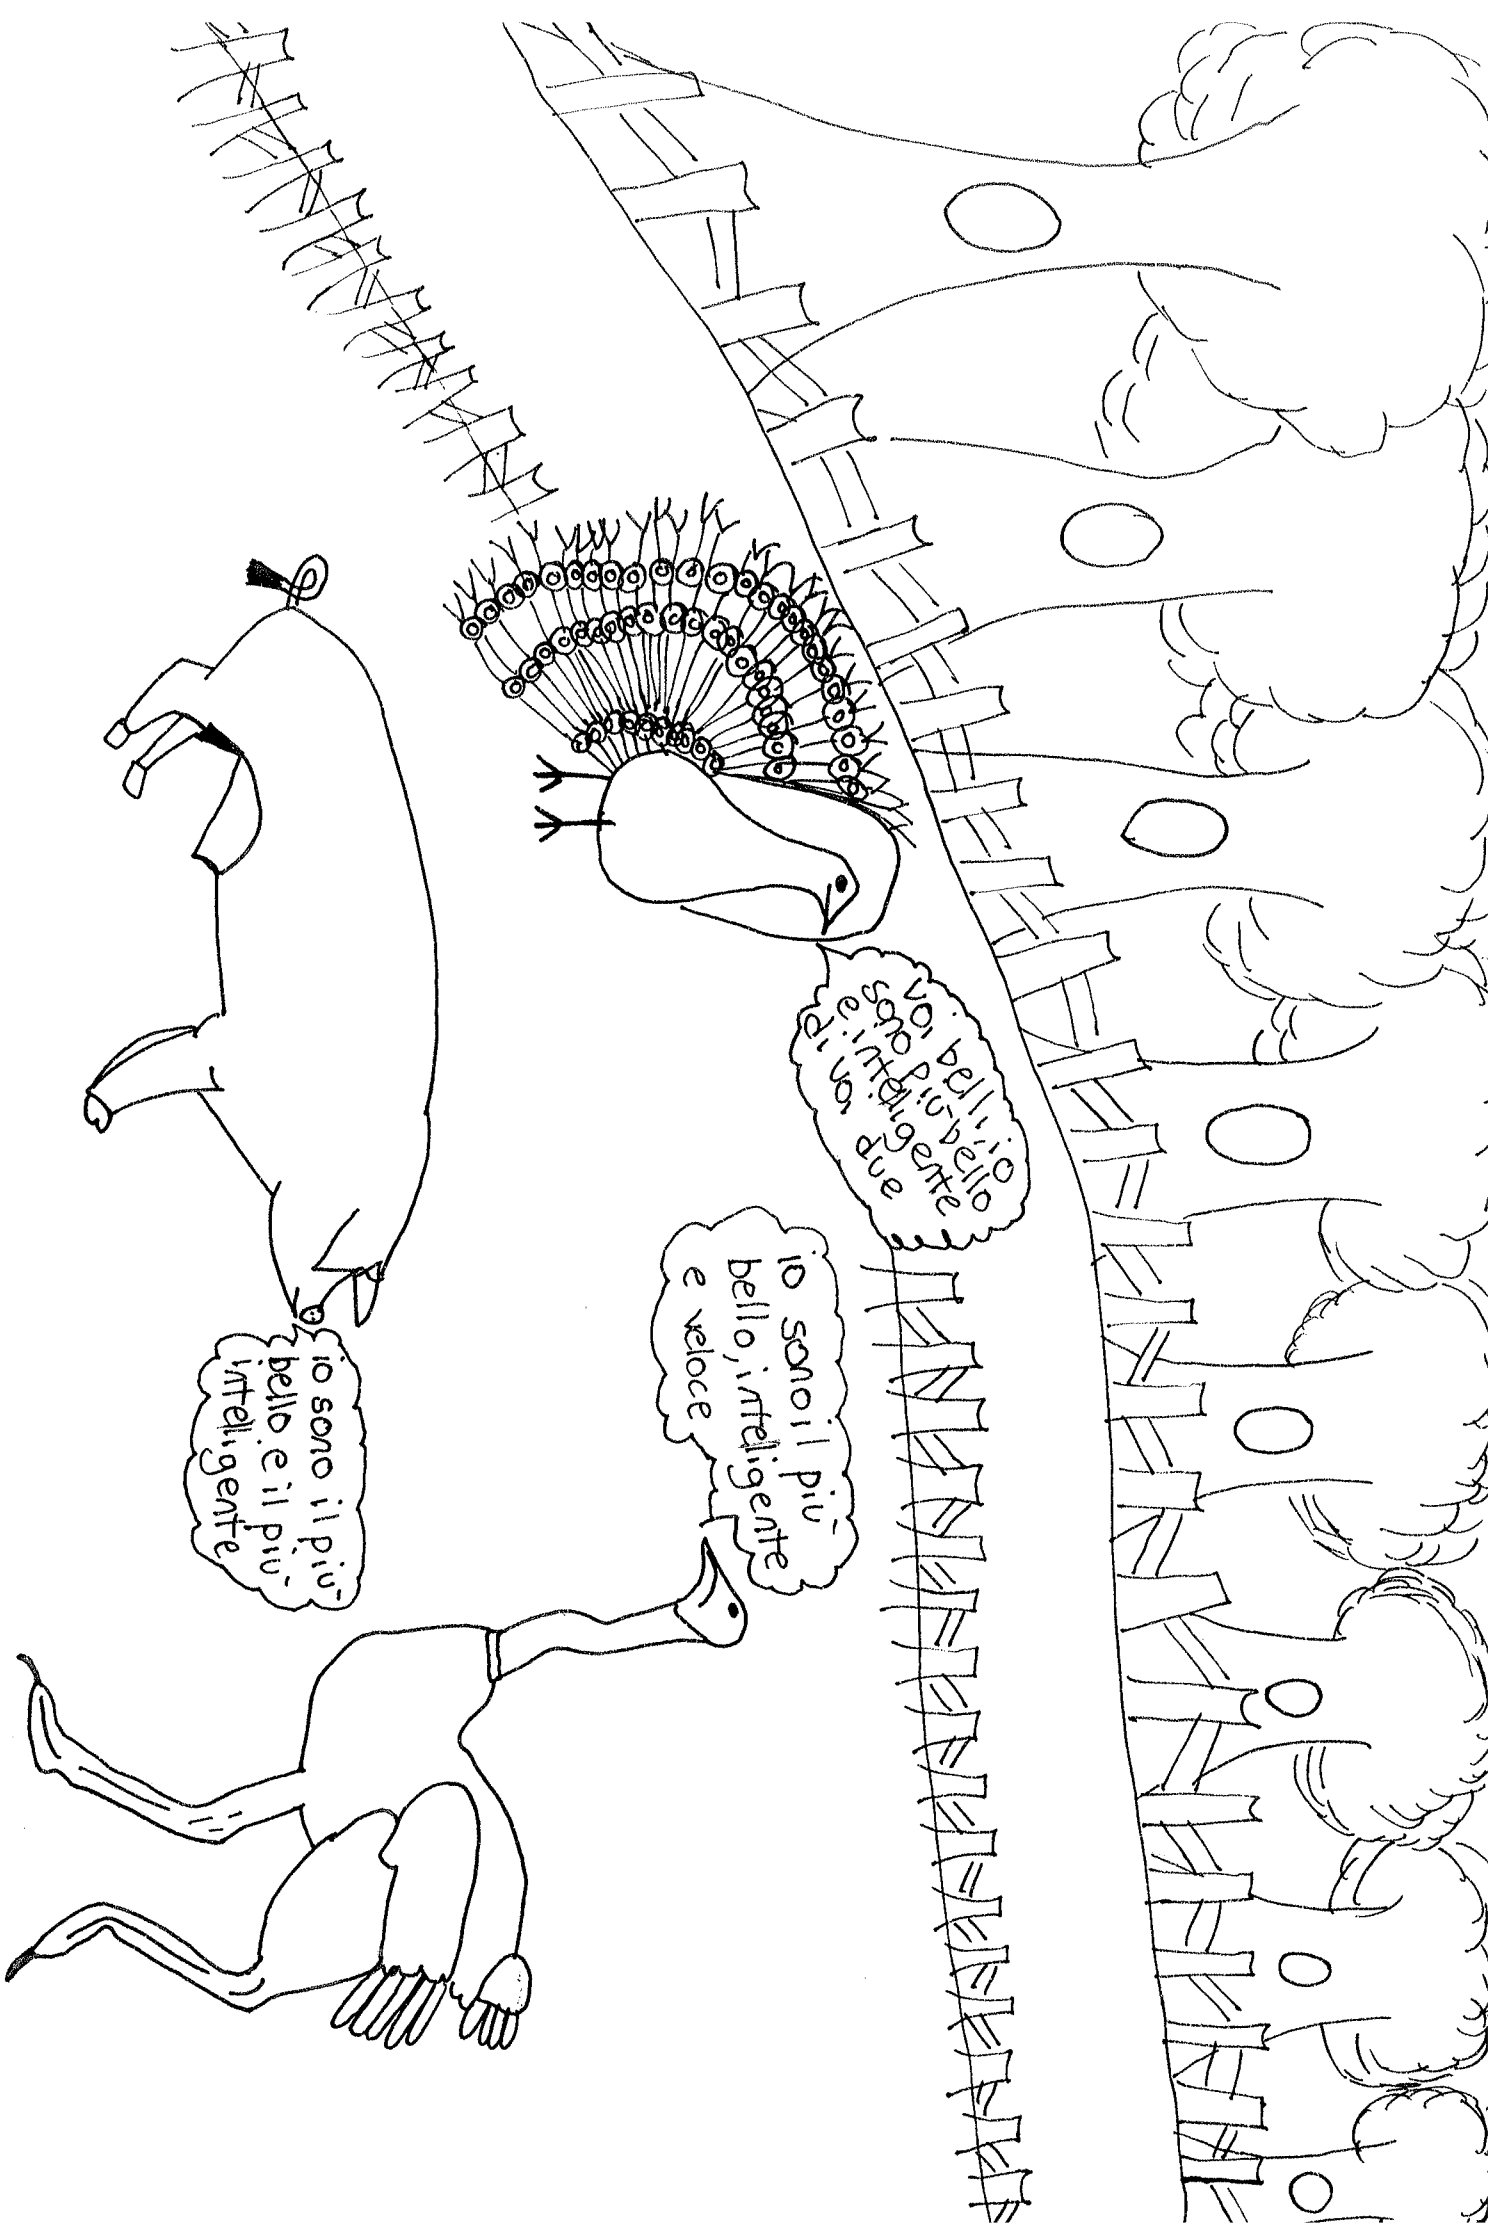 voi belli, io
sono più bello
e intelligente
di voi due
io sono il più
bello, inteligente
e veloce
io sono il più
bello e il più
intelligente